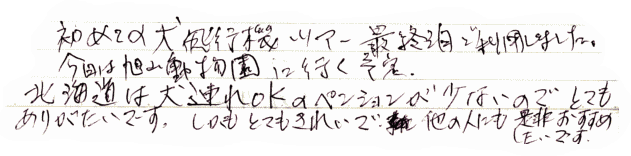 初めての犬飛行機ツアー最終泊で利用しました。
今日は旭山動物園に行く予定。
北海道は犬連れOKのペンションが少ないのでとても
ありがたいです。しかもとてもきれいで 他の人にも是非おすすめ
したいです。